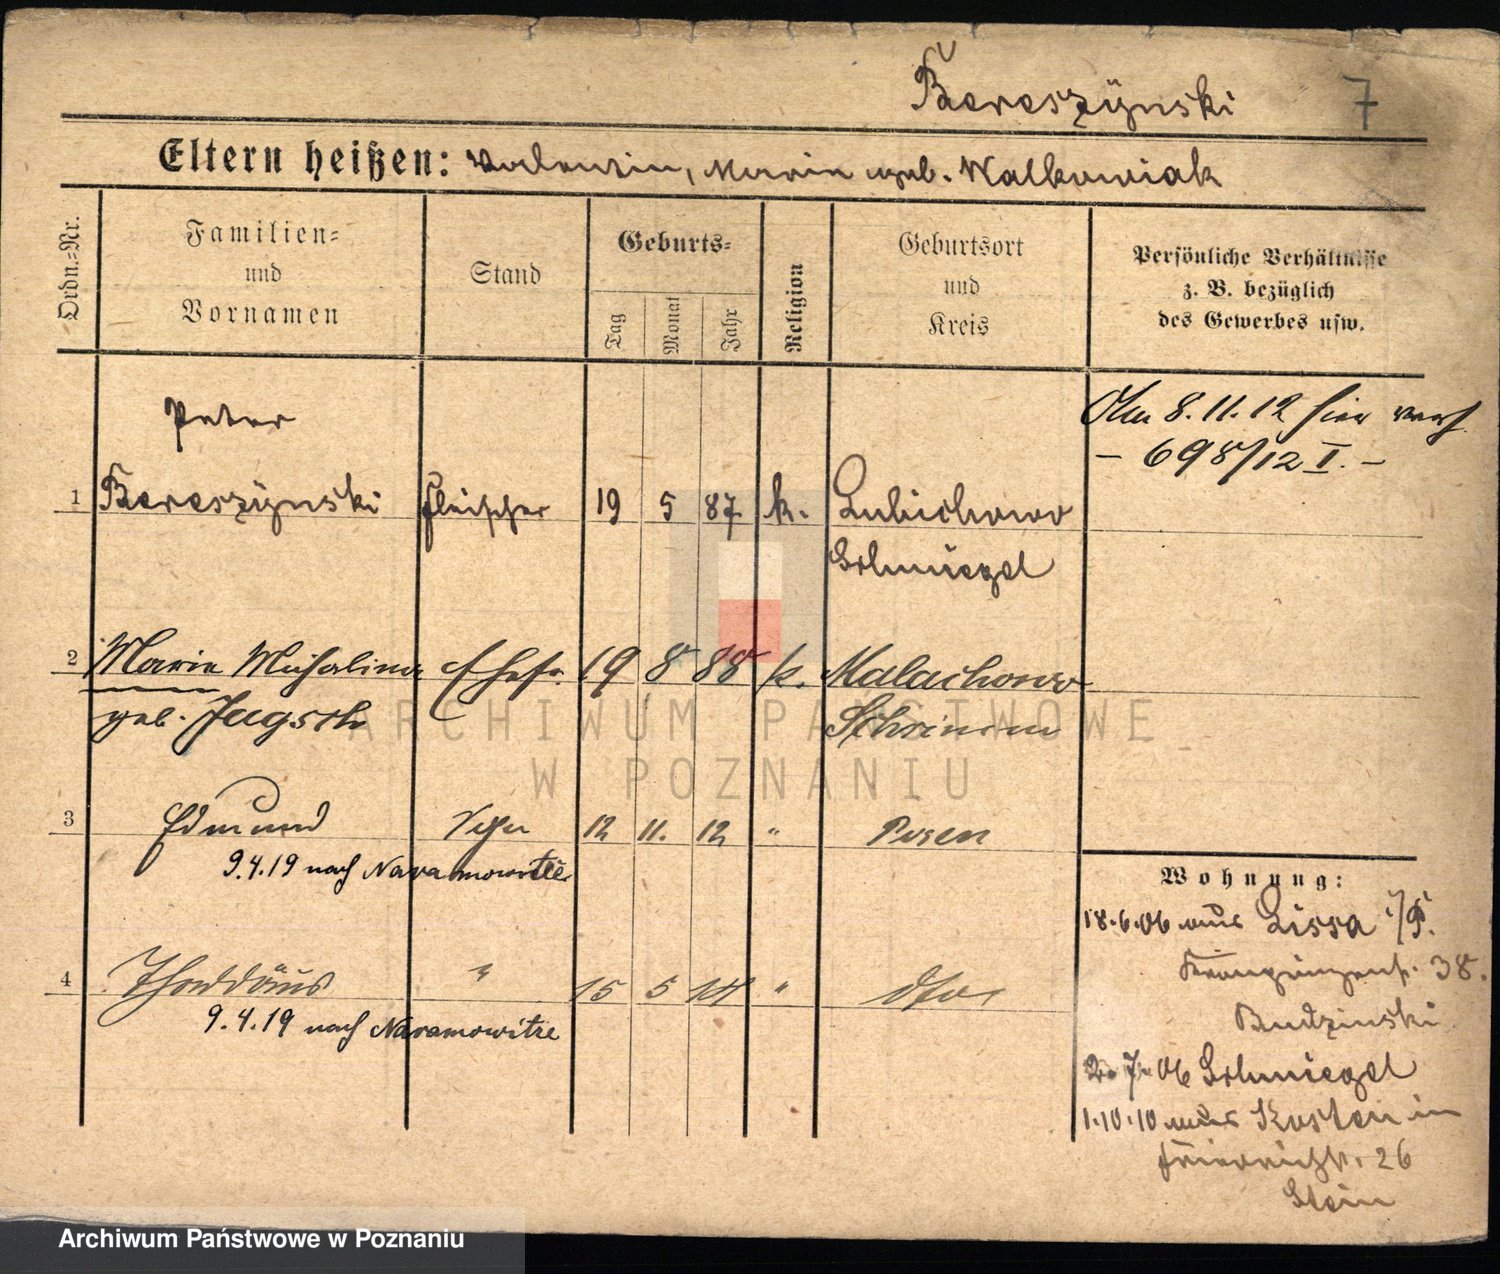 Bereszÿnski
7
Eltern heißen: Valentin, Maria geb. Walkowiak
Ordn.-Nr.
Familien-
und
Vornamen
Stand
Geburts-
Tag
Monat
Jahr
Religion
Geburtsort
und
Kreis
Persönliche Verhältnisse
z. B. bezüglich
des Gewerbes usw.
Am 8.11.12 hier verh.
- 698/12 I. -
Peter
1 Bereszÿnski Fleischer 19 5 87. k. Lubichowo
Schmiegel
2 Marie Michalina Ehefr. 19 8 88 k. Malachowo
geb. Schrimm
3 Edmund 12 11. 12 " Posen
9.4.19 nach Naramowitze
4 Thaddäus " 15 5 14 " dto
9.4.19 nach Naramowitze
Wohnung:
18.6.06 aus Lissa i/P.
Kronprinzenstr. 38.
Budzinski
2. 7. 06 Schmiegel
1.10.10 aus Kosten in
Friedrichstr. 26
Stein
ARCHIWUM PAŃSTWOWE
W POZNANIU
Archiwum Państwowe w Poznaniu